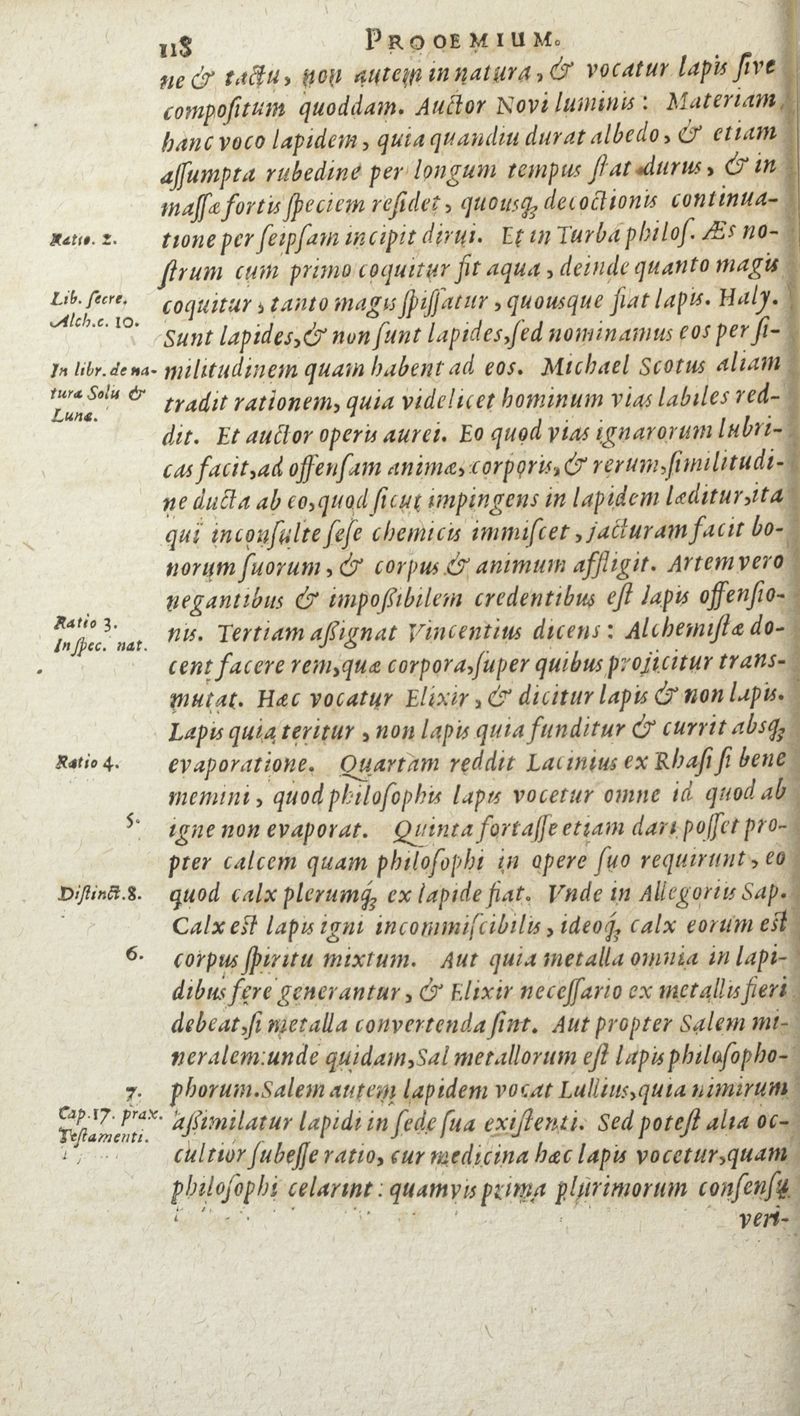 118 PROOEMIUM.
ne & tactu, non autem in natura, & vocatur lapis ſive
compoſitum quoddam. Auctor Novi luminis: Materiam
hanc voco lapidem, quia quandiu durat albedo, & etiam
aſſumpta rubedine per longum tempus ſtat durus, & in
maſſæ fortis ſpeciem reſidet, quousq; decoctionis continua-
Ratio. 2.
tione per ſeipſam incipit dirui. Et in Turba philoſ. Æs no-
ſtrum cum primo coquitur fit aqua, deinde quanto magis
Lib. ſecre.
coquitur, tanto magis ſpiſſatur, quousque fiat lapis. Haly.
Alch.c. 10.
Sunt lapides,& non ſunt lapides,ſed nominamus eos per ſi-
In libr. de na-
militudinem quam habent ad eos. Michael Scotus aliam
tura Solis &
tradit rationem, quia videlicet hominum vias labiles red-
Lunæ.
dit. Et auctor operis aurei. Eo quod vias ignarorum lubri-
cas facit,ad offenſam animæ, corporis,& rerum,ſimilitudi-
ne ducta ab eo,quod ſicut impingens in lapidem læditur,ita
qui inconſulte ſeſe chemicis immiſcet, jacturam facit bo-
norum ſuorum, & corpus & animum affligit. Artem vero
negantibus & impoſsibilem credentibus eſt lapis offenſio-
Ratio 3.
nis. Tertiam aſsignat Vincentius dicens: Alchemiſtæ do-
In ſpec. nat.
cent facere rem,quæ corpora,ſuper quibus projicitur trans-
mutat. Hæc vocatur Elixir, & dicitur lapis & non lapis.
Lapis quia teritur, non lapis quia funditur & currit absq;
Ratio 4.
evaporatione. Quartam reddit Lacinius ex Rhaſi ſi bene
memini, quod philoſophis lapis vocetur omne id quod ab
5.
igne non evaporat. Quinta fortaſſe etiam dari poſſet pro-
pter calcem quam philoſophi in opere ſuo requirunt, eo
Diſtinct.8.
quod calx plerumq; ex lapide fiat. Vnde in Allegoriis Sap.
Calx eſt lapis igni incommiſcibilis, ideoq; calx eorum eſt
6.
corpus ſpiritu mixtum. Aut quia metalla omnia in lapi-
dibus fere generantur, & Elixir neceſſario ex metallis fieri
debeat,ſi metalla convertenda ſint. Aut propter Salem mi-
neralem:unde quidam,Sal metallorum eſt lapis philoſopho-
7.
phorum.Salem autem lapidem vocat Lullius,quia nimirum
Cap.17. prax.
aſsimilatur lapidi in ſede ſua exiſtenti. Sed poteſt alia oc-
Teſtamenti.
cultior ſubeſſe ratio, cur medicina hæc lapis vocetur,quam
philoſophi celarint: quamvis prima plurimorum conſenſu
veri-